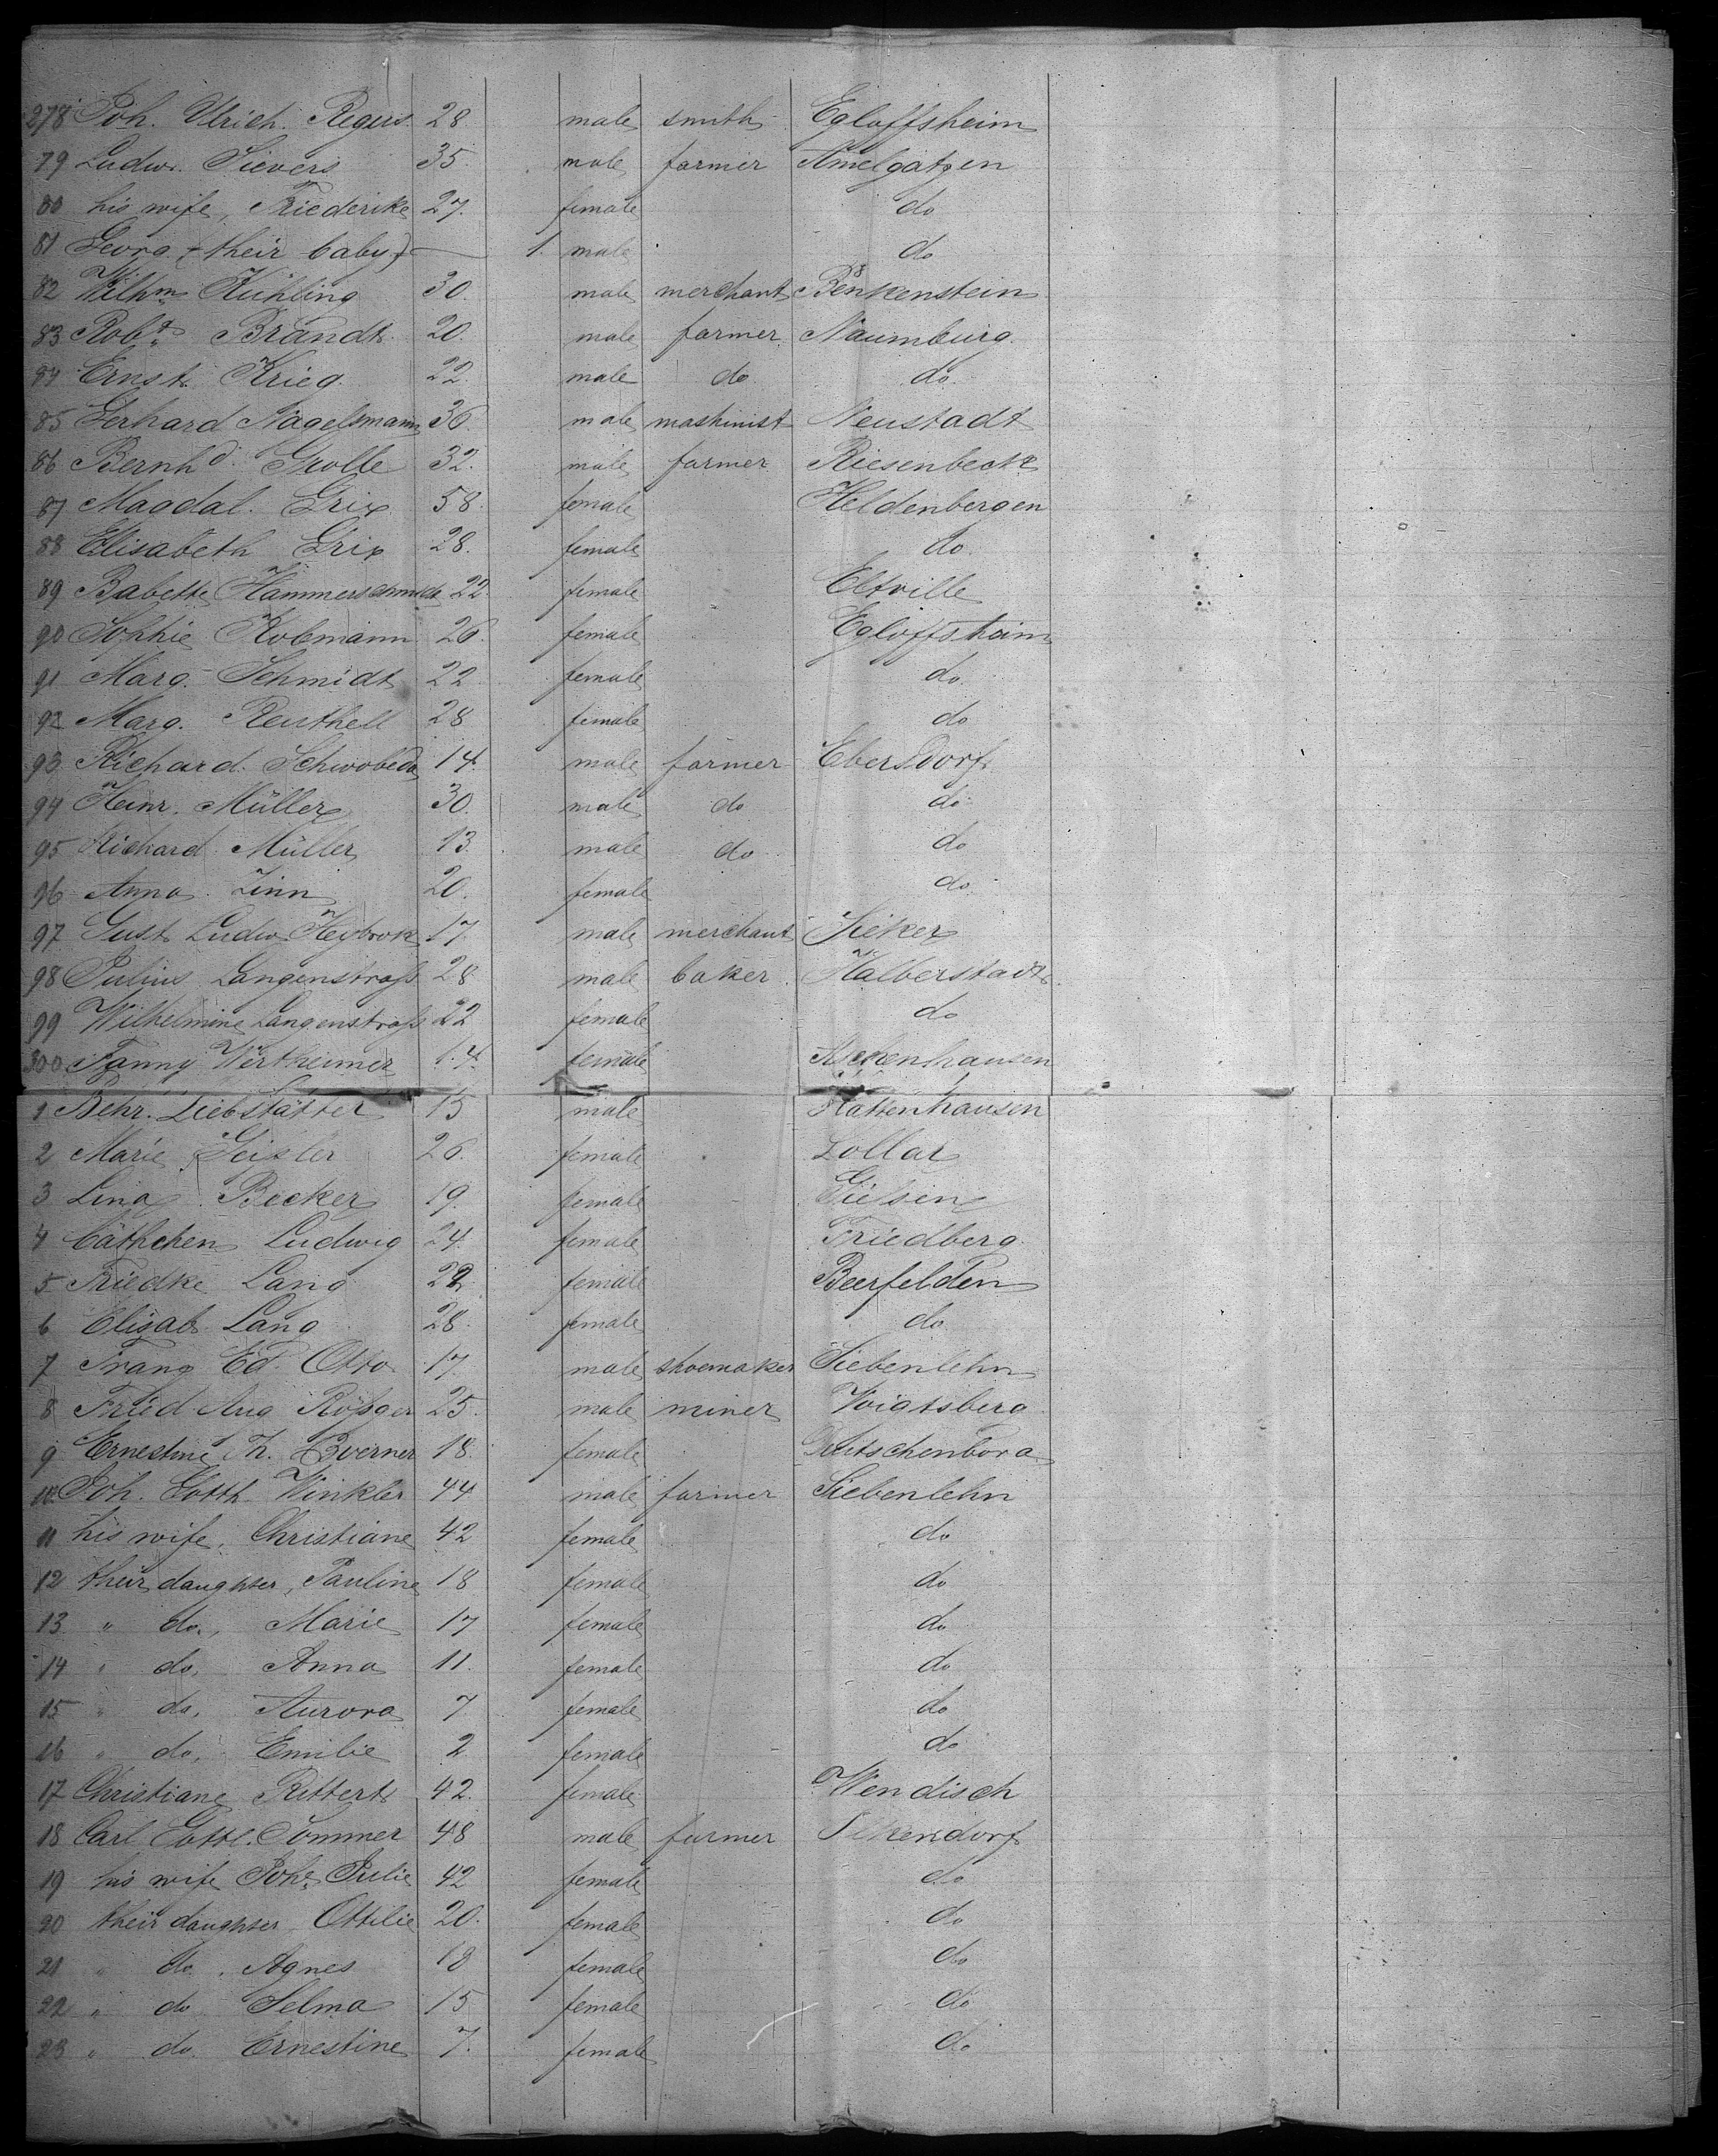 278 Joh. Ulrich. Regers. 28. male smith Egloffsheim
79 Ludw. Sievers 35. male farmer Amelgatzen
80 his wife, Friederike 27. female do
81 Georg (their baby) — 1. male do
82 Wilhm Kühling 30. male merchant Benkenstein
83 Robt. Brandt. 20. male farmer Naumburg.
84 Ernst Krieg. 22. male do do.
85 Gerhard Nagelsmann 36. male mashinist Neustadt
86 Bernhd. Grolle 32. male farmer Riesenbeck
87 Magdal. Grix 58. female Heldenbergen
88 Elisabeth Grix 28. female do.
89 Babette Hammerschmidt 22. female Eltville
90 Sophie Kolmann 26. female Egloffsheim
91 Marg. Schmidt 22 female do.
92 Marg. Reuthell 28 female do
93 Richard. Schwobeda 14. male farmer Ebersdorf
94 Heinr. Müller 30. male do do.
95 Richard Müller 13. male do do
96 Anna. Zinn 20. female do.
97 Gust Ludw. Heybrok 17. male merchant Sieker
98 Julius Langenstrass 28 male baker Halberstadt.
99 Wilhelmine Langenstrass 22 female do
300 Fanny Wertheimer 14. female Aschenhausen
1 Behr. Liebstätter 15 male Kattenhausen
2 Marie Geisler 26. female Lollar
3 Lina Becker 19. female Giessen
4 Cäthchen Ludwig 24. female Friedberg.
5 Friedke Lang 22 female Beerfelden
6 Elisab. Lang 28. female do.
7 Franz Ed. Otto 17. male shoemaker Siebenlehn
8 Fried Aug Rössger 25. male miner Voigtsberg.
9 Ernestine Th. Boerner 18. female Deutschenbora
10. Joh. Gotth Winkler 44 male farmer Siebenlehn
11 his wife, Christiane 42 female do
12 their daughter, Pauline 18 female do
13 " do., Marie 17 female do
14 " do, Anna 11. female do
15 " do, Aurora 7 female do
16 " do, Emilie 2 female do
17 Christiane Rittert 42. female Wendisch
18 Carl Gottl. Sommer 48 male farmer
19 his wife Johe Julie 42 female do
20 their daughter Ottilie 20. female do
21 " do. Agnes 18 female do
22 " do Selma 15 female do
23 " do. Ernestine 7. female do